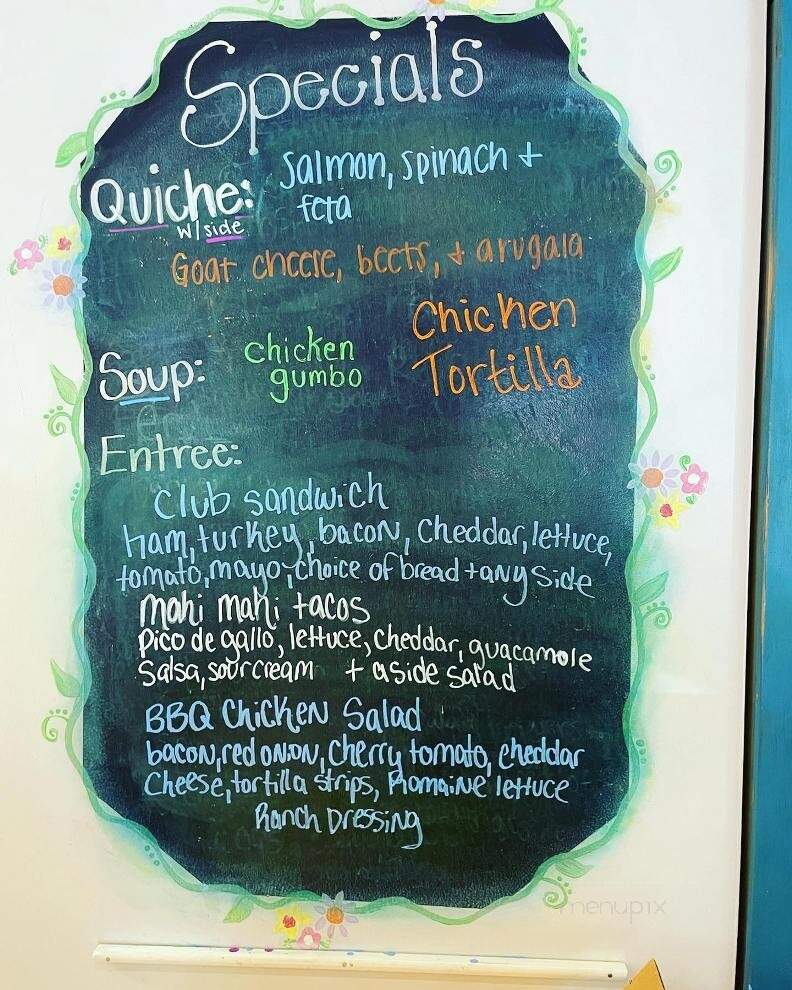 Specials
Quiche: Salmon, spinach +
w/side feta
Goat cheese, beets, + arugala
Soup: chicken gumbo Chicken Tortilla
Entree:
Club sandwich
ham, turkey, bacon, cheddar, lettuce,
tomato, mayo, choice of bread + any side
Mahi Mahi tacos
Pico de gallo, lettuce, cheddar, guacamole
Salsa, sour cream + a side salad
BBQ Chicken Salad
bacon, red onion, cherry tomato, cheddar
Cheese, tortilla strips, Romaine lettuce
Ranch Dressing
menupix